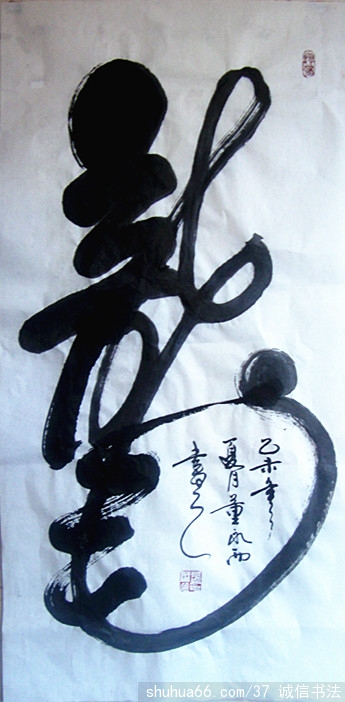 龍
乙未年
夏月董 雨
書之
shuhua66.com/37 诚信书法